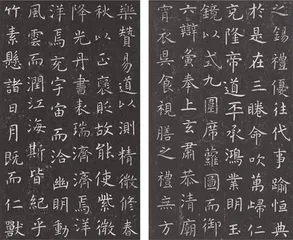 之錫禮優往代事踰恒典
於是在三眷命吹萬歸仁
克隆帝道丕承鴻業明玉
鏡以式九圍席蘿圖而御
六辯夤奉上玄肅恭清廟
宵衣昃食視膳之禮無方
樂贊易道以測精微修春
秋以正褒貶故能使紫微
降光丹書表瑞濟濟焉洋
洋焉充宇宙而洽幽明動
風雲而潤江海斯皆紀乎
竹素懸諸日月既而仁獸